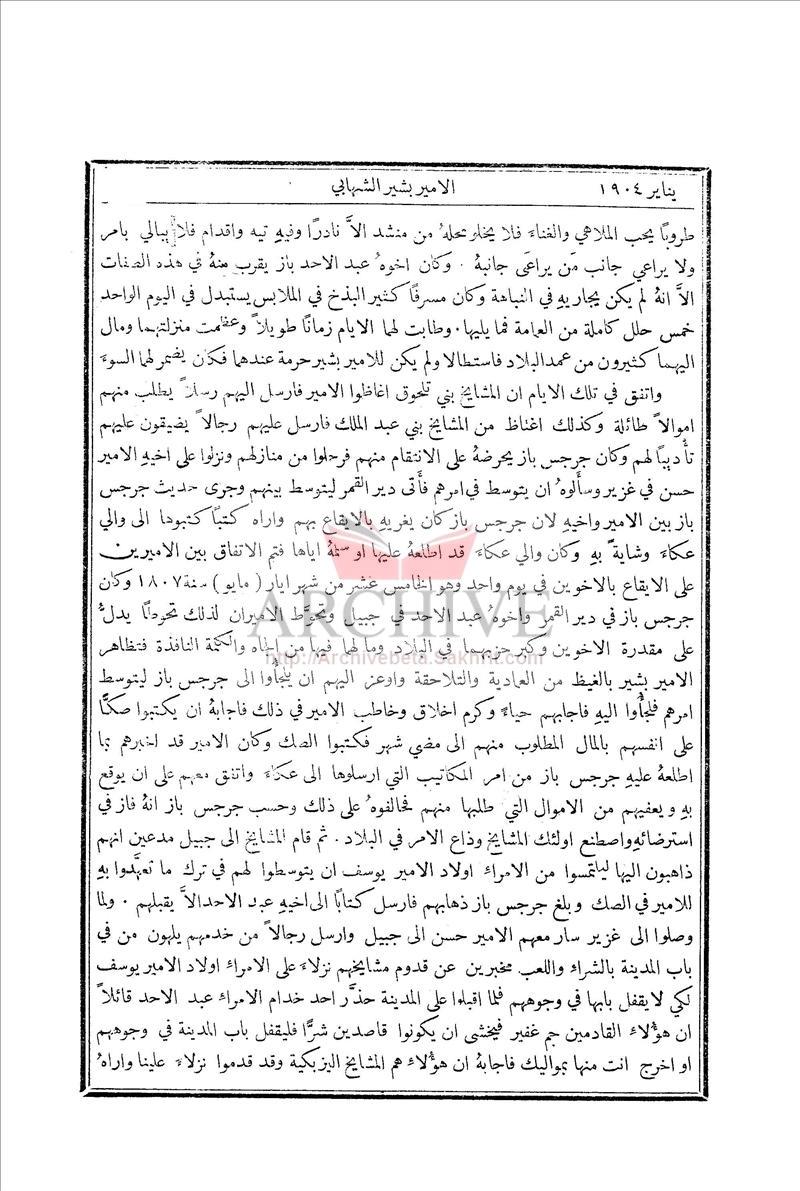 يناير ١٩٠٤
الامير بشير الشهابي
طروبًا يحب الملاهي والغناءَ فلا يخلو محلهُ من منشد الاَّ نادرًا وفيهِ تيه واقدام فلا يبالي بامر
ولا يراعي جانب مَن يراعَى جانبهُ . وكان اخوهُ عبد الاحد باز يقرب منهُ في هذه الصفات
الاَّ انهُ لم يكن يجاريهِ في النباهة وكان مسرفًا كثير البذخ في الملابس يستبدل في اليوم الواحد
خمس حلل كاملة من العامة فما يليها . وطابت لهما الايام زمانًا طويلاً وعظمت منزلتهما ومال
اليهما كثيرون من عمد البلاد فاستطالا ولم يكن للامير بشير حرمة عندهما فكان يضمر لهما السوءَ
واتفق في تلك الايام ان المشايخ بني تلحوق اغاظوا الامير فارسل اليهم رسلاً يطلب منهم
اموالاً طائلة وكذلك اغتاظ من المشايخ بني عبد الملك فارسل عليهم رجالاً يضيقون عليهم
تأديبًا لهم وكان جرجس باز يحرضهُ على الانتقام منهم فرحلوا من منازلهم ونزلوا على اخيهِ الامير
حسن في غزير وسأَلوهُ ان يتوسط في امرهم فأَتى دير القمر ليتوسط بينهم وجرى حديث جرجس
باز بين الامير واخيهِ لان جرجس باز كان يغريهِ بالايقاع بهم واراه كتبًا كتبوها الى والي
عكاءَ وشايةً بهِ وكان والي عكاءَ قد اطلعهُ عليها او سلمهُ اياها فتم الاتفاق بين الاميرين
على الايقاع بالاخوين في يوم واحد وهو الخامس عشر من شهر ايار ( مايو ) سنة ١٨٠٧ وكان
جرجس باز في دير القمر واخوهُ عبد الاحد في جبيل وتحوَّط الاميران لذلك تحوطًا يدلُّ
على مقدرة الاخوين وكبر حزبهما في البلاد وما لهما فيها من الجاه والكلمة النافذة فتظاهر
الامير بشير بالغيظ من العادية والتلاحقة واوعز اليهم ان يلجأُوا الى جرجس باز ليتوسط
امرهم فلجأُوا اليهِ فاجابهم حياءً وكرم اخلاق وخاطب الامير في ذلك فاجابهُ ان يكتبوا صكًّا
على انفسهم بالمال المطلوب منهم الى مضي شهر فكتبوا الصك وكان الامير قد اخبرهم بما
اطلعهُ عليهِ جرجس باز من امر المكاتيب التي ارسلوها الى عكاءَ واتفق معهم على ان يوقع
بهِ ويعفيهم من الاموال التي طلبها منهم فحالفوهُ على ذلك وحسب جرجس باز انهُ فاز في
استرضائهِ واصطنع اولئك المشايخ وذاع الامر في البلاد . ثم قام المشايخ الى جبيل مدعين انهم
ذاهبون اليها ليلتمسوا من الامراء اولاد الامير يوسف ان يتوسطوا لهم في ترك ما تعهَّدوا بهِ
للامير في الصك وبلغ جرجس باز ذهابهم فارسل كتابًا الى اخيهِ عبد الاحد الاَّ يقبلهم . ولما
وصلوا الى غزير سار معهم الامير حسن الى جبيل وارسل رجالاً من خدمهم يلهون من في
باب المدينة بالشراء واللعب مخبرين عن قدوم مشايخهم نزلاءَ على الامراء اولاد الامير يوسف
لكي لا يقفل بابها في وجوههم فلما اقبلوا على المدينة حذَّر احد خدام الامراء عبد الاحد قائلاً
ان هؤلاءِ القادمين جم غفير فيخشى ان يكونوا قاصدين شرًّا فليقفل باب المدينة في وجوههم
او اخرج انت منها بمواليك فاجابهُ ان هؤُلاءِ هم المشايخ اليزبكية وقد قدموا نزلاءَ علينا واراهُ
ARCHIVE
http://Archivebeta.Sakhrit.com